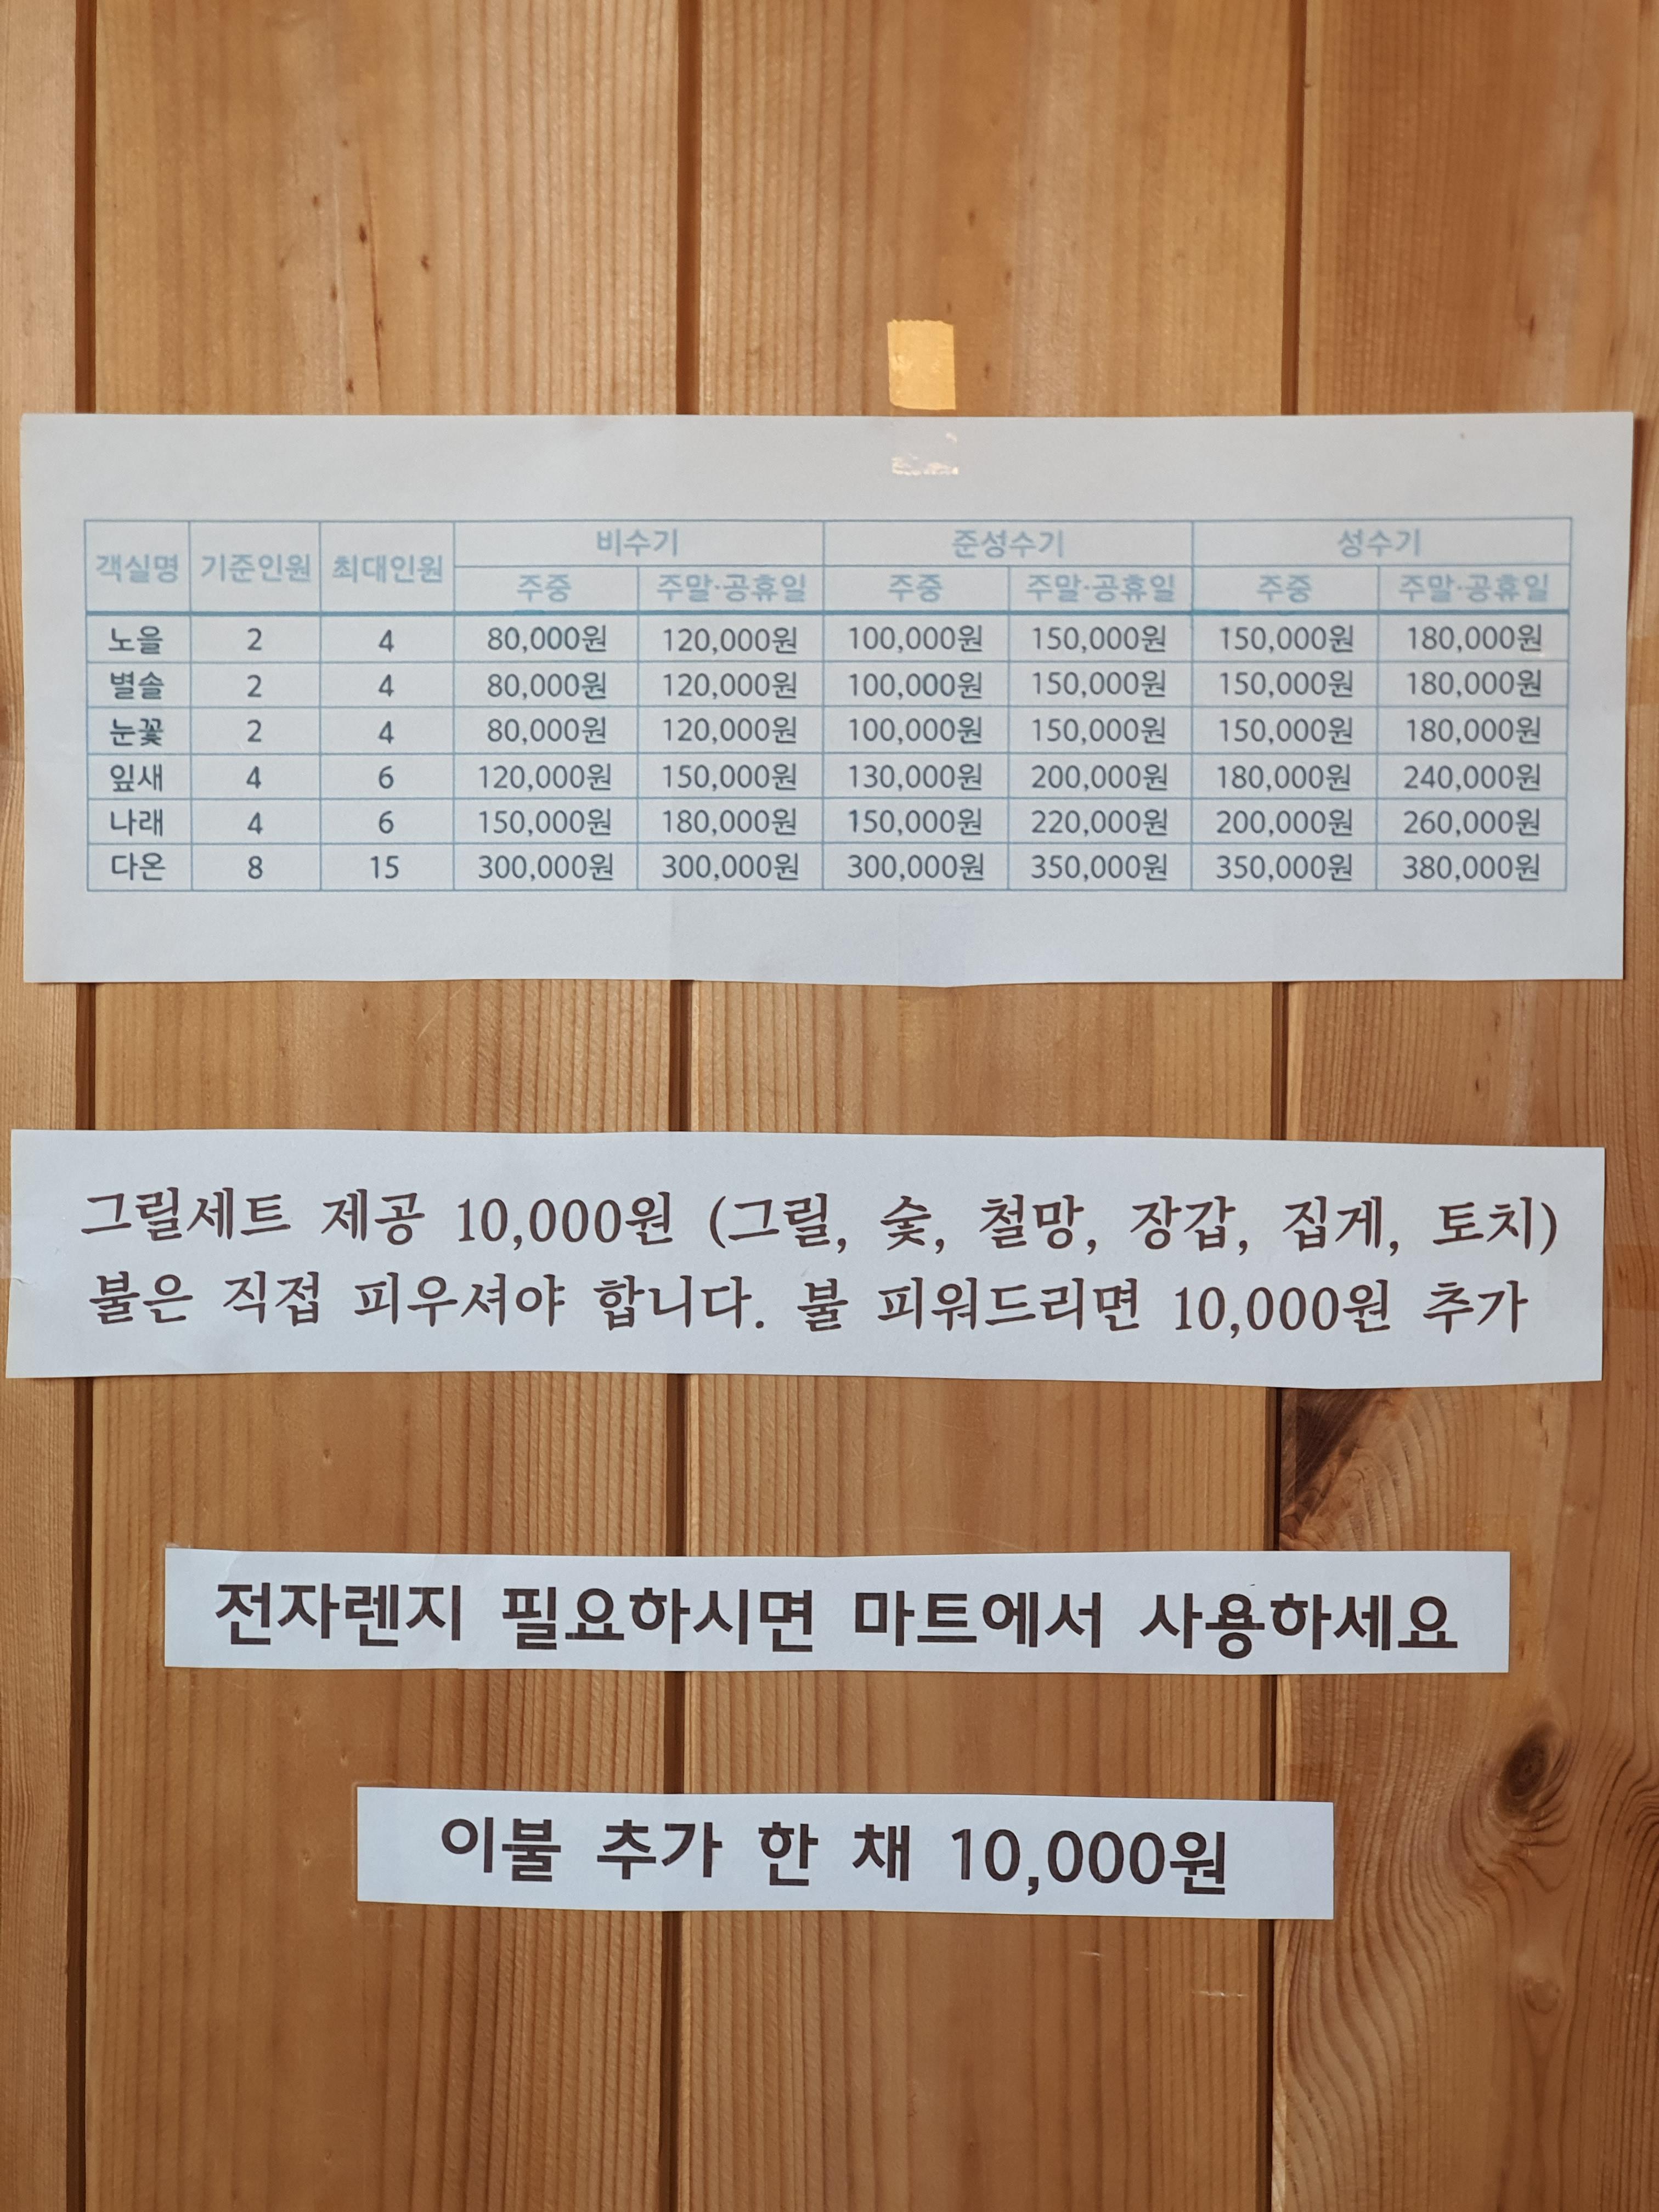 객실명 기준인원 최대인원 비수기 준성수기 성수기
주중 주말·공휴일 주중 주말·공휴일 주중 주말·공휴일
노을 2 4 80,000원 120,000원 100,000원 150,000원 150,000원 180,000원
별솔 2 4 80,000원 120,000원 100,000원 150,000원 150,000원 180,000원
눈꽃 2 4 80,000원 120,000원 100,000원 150,000원 150,000원 180,000원
잎새 4 6 120,000원 150,000원 130,000원 200,000원 180,000원 240,000원
나래 4 6 150,000원 180,000원 150,000원 220,000원 200,000원 260,000원
다온 8 15 300,000원 300,000원 300,000원 350,000원 350,000원 380,000원
그릴세트 제공 10,000원 (그릴, 숯, 철망, 장갑, 집게, 토치)
불은 직접 피우셔야 합니다. 불 피워드리면 10,000원 추가
전자렌지 필요하시면 마트에서 사용하세요
이불 추가 한 채 10,000원